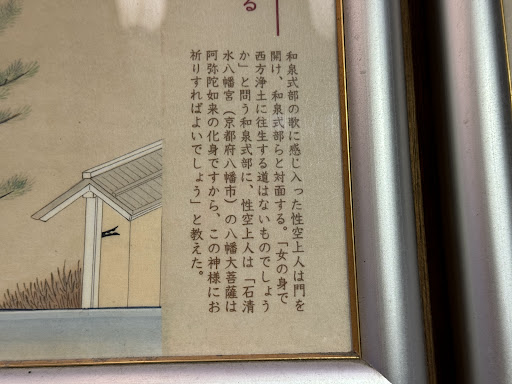 る
和泉式部の歌に感じ入った性空上人は門を
開け、和泉式部らと対面する。「女の身で
西方浄土に往生する道はないものでしょう
か」と問う和泉式部に、性空上人は「石清
水八幡宮（京都府八幡市）の八幡大菩薩は
阿弥陀如来の化身ですから、この神様にお
祈りすればよいでしょう」と教えた。